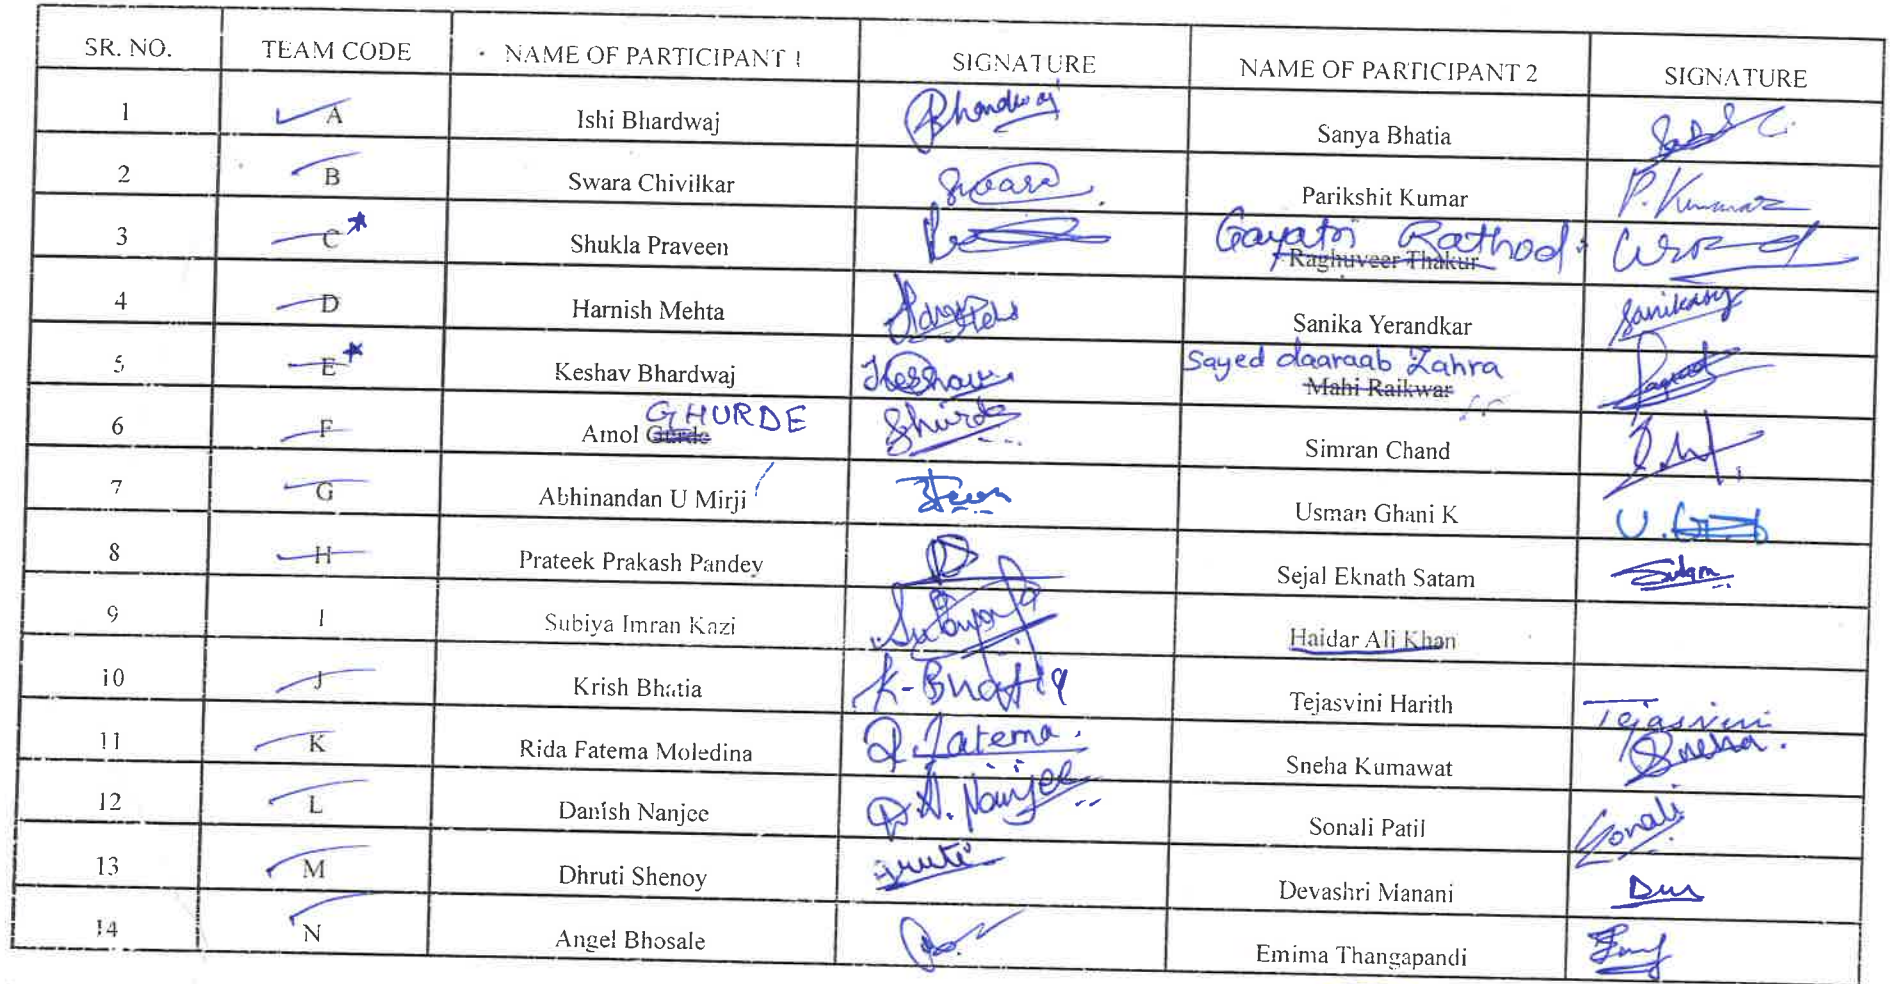 SR. NO. TEAM CODE NAME OF PARTICIPANT 1 SIGNATURE NAME OF PARTICIPANT 2 SIGNATURE
1 A Ishi Bhardwaj Bhardwaj Sanya Bhatia
2 B Swara Chivilkar Swara Parikshit Kumar P. Kumar
3 C* Shukla Praveen Gayatri Rathod
Raghuveer Thakur
4 D Harnish Mehta Sanika Yerandkar
5 E* Keshav Bhardwaj Keshav Sayed daaraab Zahra
Mahi Raikwar
GHURDE
6 F Amol Gurde Ghurde Simran Chand
7 G Abhinandan U Mirji Usman Ghani K
8 H Prateek Prakash Pandey Sejal Eknath Satam Satam
9 I Subiya Imran Kazi Haidar Ali Khan
10 J Krish Bhatia K-Bhatia Tejasvini Harith Tejasvini
11 K Rida Fatema Moledina R. Fatema. Sneha Kumawat Sneha.
12 L Danish Nanjee D.A. Nanjee Sonali Patil Sonali
13 M Dhruti Shenoy Devashri Manani
14 N Angel Bhosale Emima Thangapandi